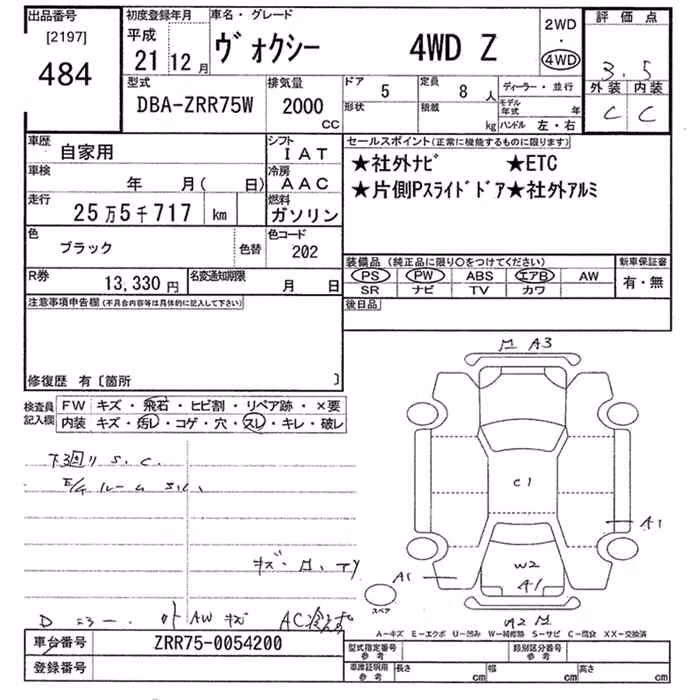 出品番号
[2197]
484
初度登録年月
平成
21 12 月
車名・グレード
ヴォクシー 4WD Z
2WD
・
4WD
評価点
3.5
外装 内装
C C
型式
DBA-ZRR75W
排気量
2000
CC
ドア 5
形状
定員 8 人
積載 kg
ディーラー・並行
モデル年式 年
ハンドル 左・右
車歴 自家用
シフト IAT
車検 年 月( 日)
冷房 AAC
走行 25万5千717 km
燃料 ガソリン
色 ブラック 色替
色コード 202
R券 13,330 円
名変通知期限 月 日
セールスポイント(正常に機能するものに限ります)
★社外ナビ ★ETC
★片側Pスライドドア★社外アルミ
装備品(純正品に限り○をつけてください)
PS PW ABS エアB AW
SR ナビ TV カワ
新車保証書
有・無
後日品
注意事項申告欄(不具合内容等は具体的に記入して下さい)
修復歴 有〔箇所 〕
検査員記入欄
FW キズ・飛石・ヒビ割・リペア跡・×要
内装 キズ・汚レ・コゲ・穴・スレ・キレ・破レ
下廻り S.C.
E/G ルーム S.C.
D AW キズ AC
A3
C1
A1
W2
A1
A1
スペア
A-キズ E-エクボ U-凹み W-補修跡 S-サビ C-腐食 XX-交換済
車台番号 ZRR75-0054200
登録番号
型式指定番号 参考
類別区分番号 参考
車庫証明用 参考
長さ cm 幅 cm 高さ cm